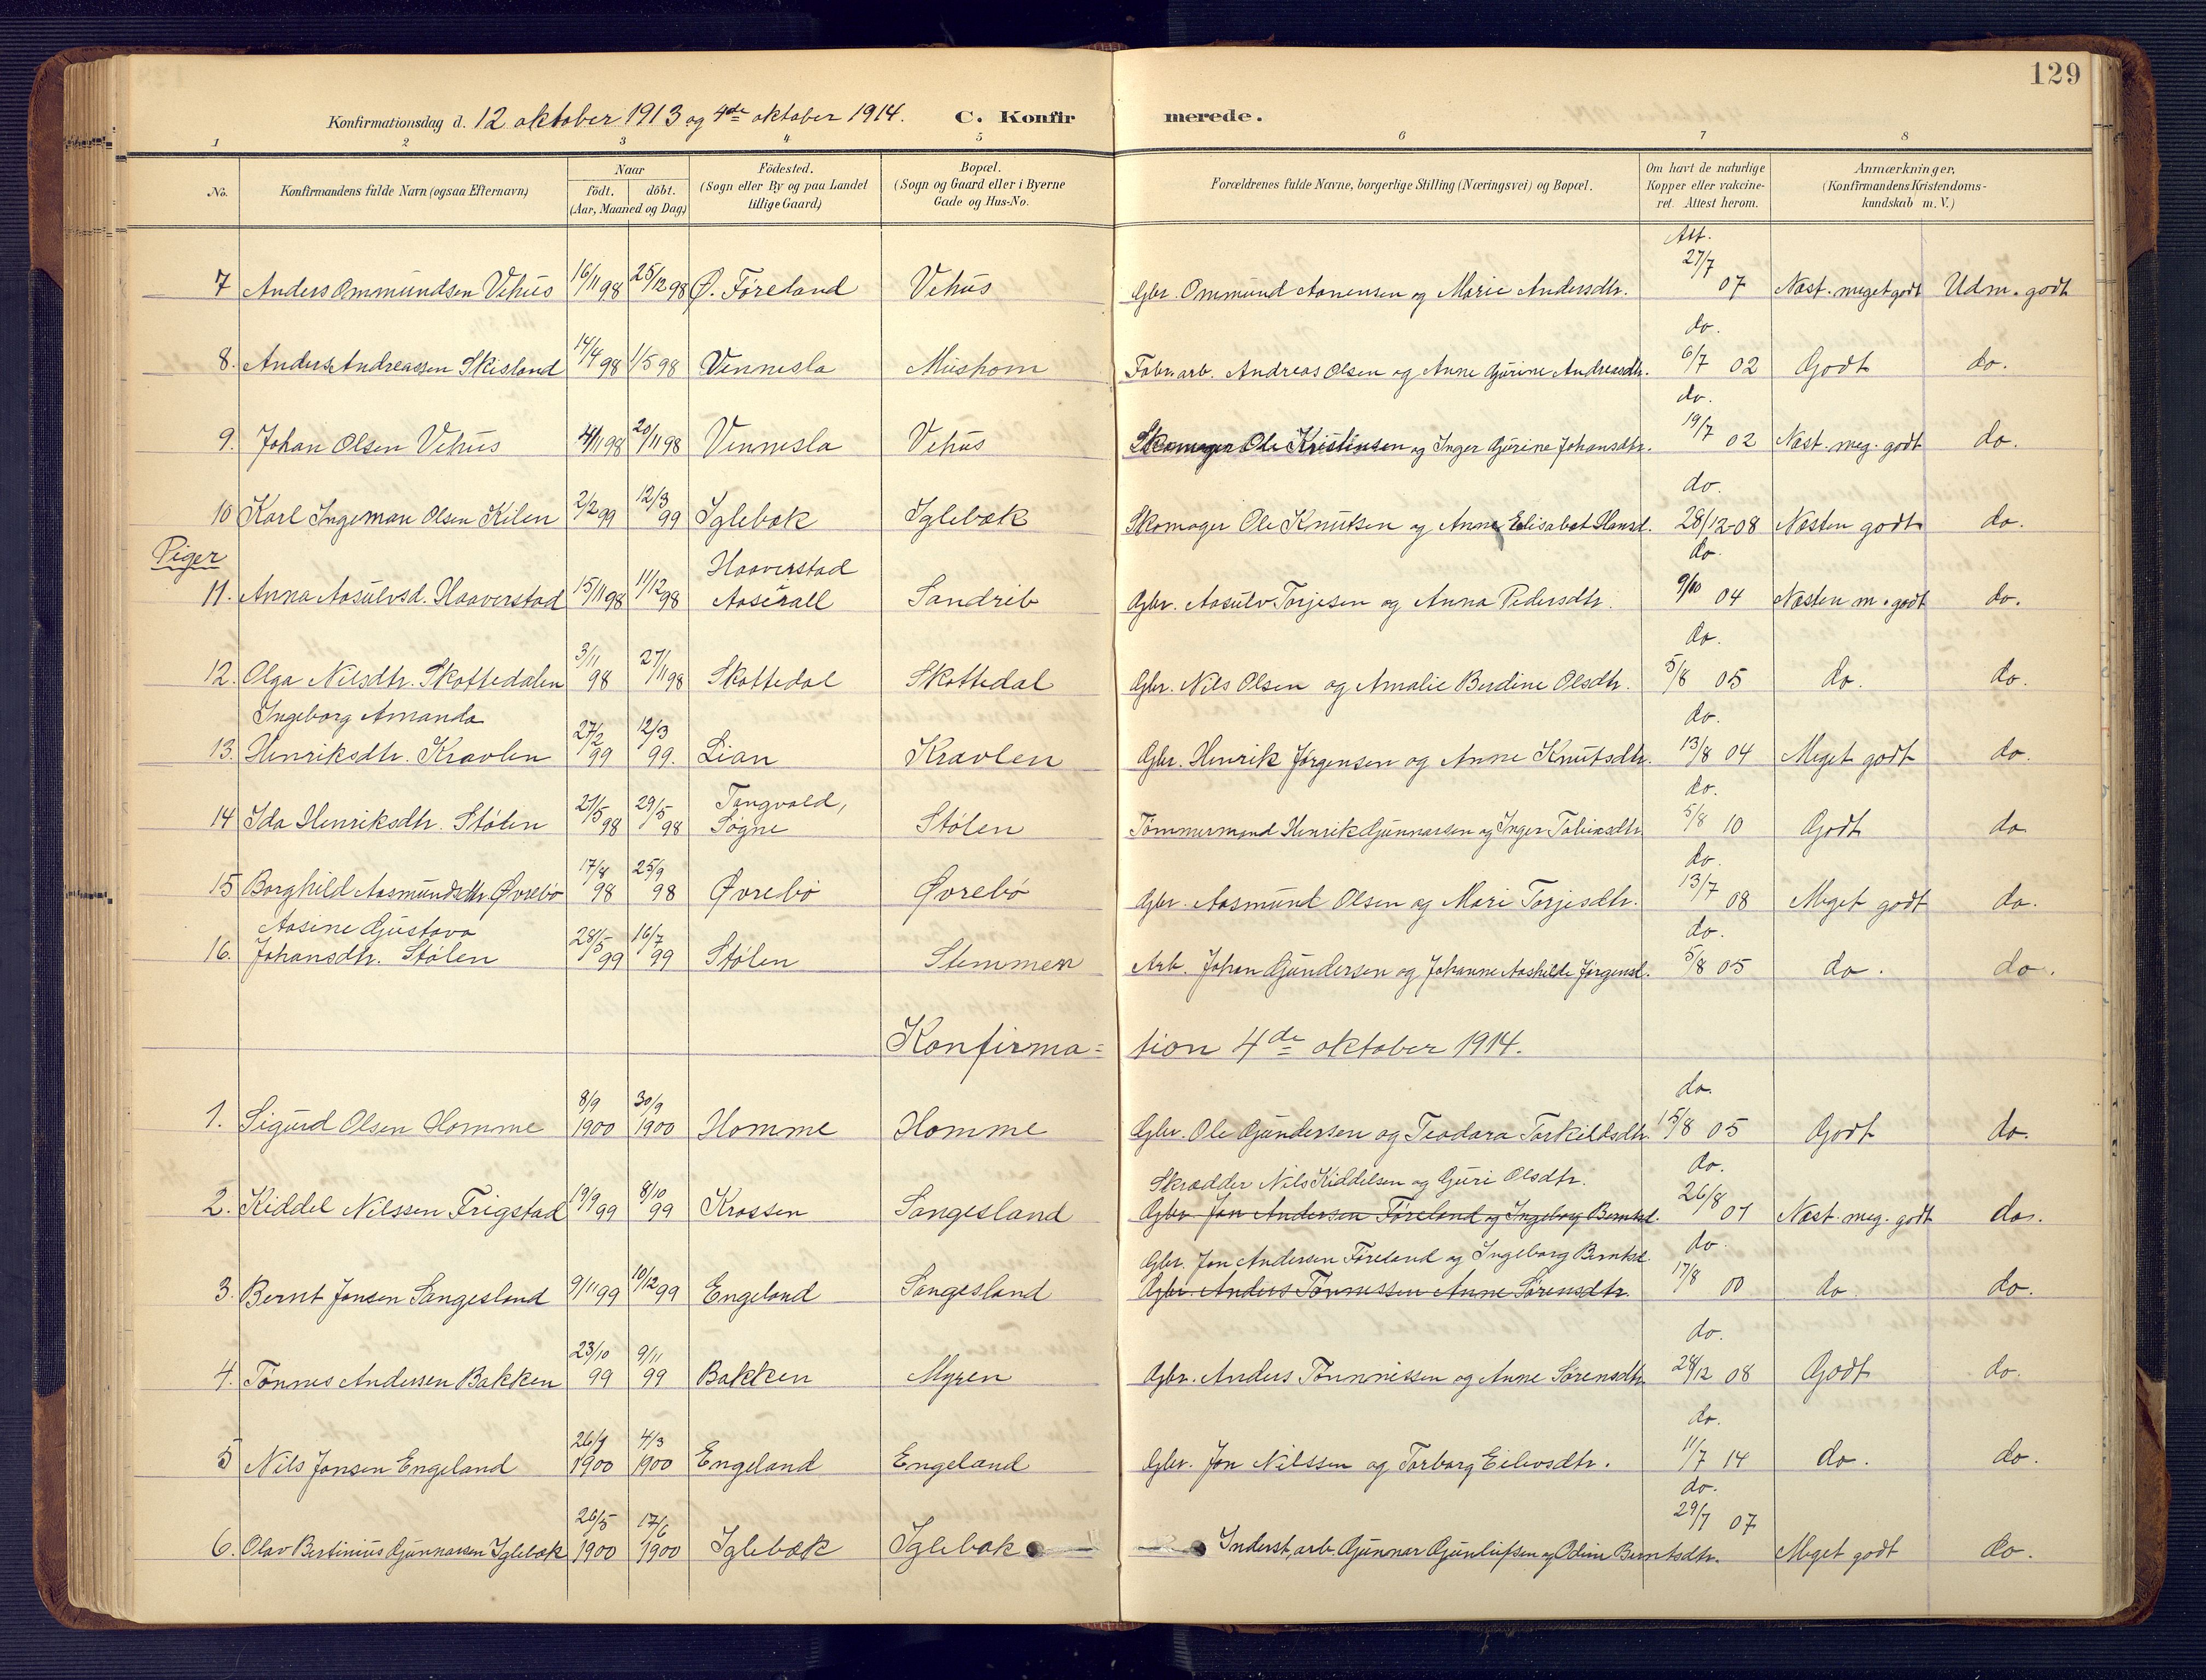 129
Konfirmationsdag d. 12 oktober 1913 og 4de oktober 1914. C. Konfirmerede.
1 2 3 4 5 6 7 8
No. Konfirmandens fulde Navn (ogsaa Efternavn) Naar födt. döbt. (Aar, Maaned og Dag) Födested. (Sogn eller By og paa Landet tillige Gaard) Bopæl. (Sogn og Gaard eller i Byerne Gade og Hus-No. Forældrenes fulde Navne, borgerlige Stilling (Næringsvei) og Bopæl. Om havt de naturlige Kopper eller vakcineret. Attest herom. Anmærkninger, (Konfirmandens Kristendomskundskab m. V.)
7 Anders Ommundsen Vehus 16/11 98 25/12 98 Ø. Føreland Vehus Gbr. Ommund Aanensen og Marie Andersdtr. Att. 27/7 07 Næst. meget godt Udm. godt
8. Anders Andreassen Skisland 14/4 98 1/5 98 Vennesla Mushom Fabr. arb. Andreas Olsen og Anne Gurine Andreasdtr. do. 6/7 02 Godt do.
9. Johan Olsen Vehus 4/11 98 20/11 98 Vennesla Vehus Skomager Ole Kristensen og Inger Gurine Johansdtr. do. 19/7 02 Næst. meg. godt do.
10 Karl Ingeman Olsen Kilen 2/2 99 12/3 99 Iglebæk Iglebæk Skomager Ole Knutsen og Anne Elisabet Hansd. do. 28/12-08 Næsten godt do.
Piger
11. Anna Aasulvsd. Haaverstad 15/11 98 11/12 98 Haaverstad Aaserall Sandrib Gbr. Aasulv Torjesen og Anna Pedersdtr. do. 9/10 04 Næsten m. godt do.
12. Olga Nilsdtr. Skottedalen 3/11 98 27/11 98 Skottedal Skottedal Gbr. Nils Olsen og Amalie Berdine Olsdtr. do. 5/8 05 do. do.
Ingeborg Amanda
13. Henriksdtr. Kravlen 27/2 99 12/3 99. Lian Kravlen Gbr. Henrik Jørgensen og Anne Knutsdtr. do. 13/8 04 Meget godt do.
14 Ida Henriksdtr. Stølen 21/5 98 29/5 98 Tangvald, Søgne Stølen Tømmermand Henrik Gunnarsen og Inger Tobiasdtr. do. 5/8 10 Godt do.
15 Borghild Aasmundsdtr. Øvrebø 17/8 98 25/9 98 Øvrebø Øvrebø Gbr. Aasmund Olsen og Mari Torjesdtr. do. 13/7 08 Meget godt do.
Aasine Gustava
16. Johansdtr. Stølen 28/5 99 16/7 99 Stølen Stemmen Arb. Johan Gundersen og Johanne Aashilde Jørgensd. do. 5/8 05 do. do.
Konfirma= tion 4de oktober 1914.
1. Sigurd Olsen Homme 8/9 1900 30/9 1900 Homme Homme Gbr. Ole Gundersen og Teodora Torkildsdtr. do. 15/8 05 Godt do.
Skrædder Nils Kiddelsen og Guri Olsdtr.
2. Kiddel Nilssen Frigstad 19/9 99 8/10 99 Krossen Sangesland Gbr. Jon Andersen Føreland og Ingeborg Berntsd. do. 26/8 01 Næst. meg. godt do.
Gbr. Jon Andersen Føreland og Ingeborg Berntsd.
3. Bernt Jonsen Sangesland 9/11 99 10/12 99 Engeland Sangesland Gbr. Anders Tønnessen Anne Sørensdtr. do. 17/8 00 do. do.
4. Tønnes Andersen Bakken 23/10 99 9/11 99 Bakken Myren Gbr. Anders Tønnnessen og Anne Sørensdtr. do. 28/12 08 Godt do.
5 Nils Jonsen Engeland 26/1 1900 4/3 1900 Engeland Engeland Gbr. Jon Nilssen og Torborg Eilevsdtr. do. 11/7 14 do. do.
6. Olav Bertinius Gunnarsen Iglebæk 26/5 1900 17/6 1900 Iglebæk Iglebæk Inderst, arb. Gunnar Gunlufsen og Odine Berntsdtr. do. 29/7 07 Meget godt do.